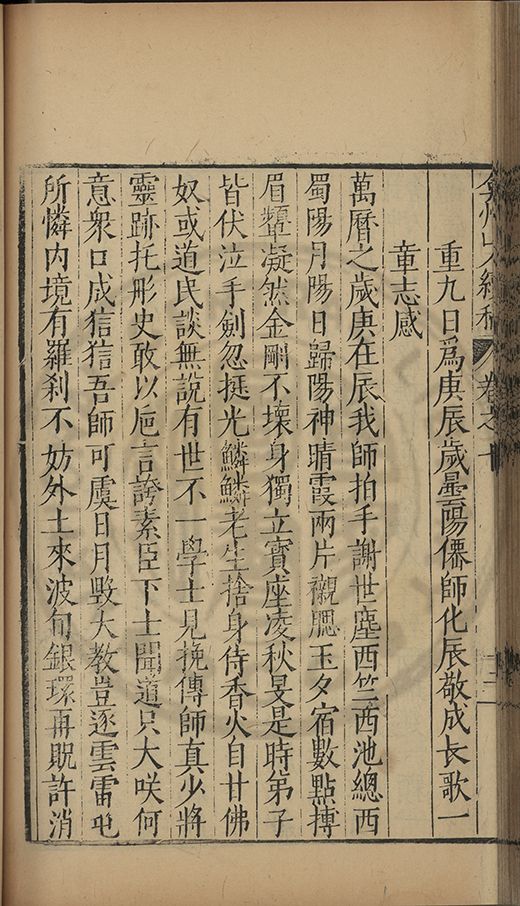 弇州山人續稿 卷之十 十二
重九日爲庚辰歲曇陽僊師化辰敬成长歌一
章志感
萬曆之歲庚在辰我師拍手謝世塵西竺西池總西
蜀陽月陽日歸陽神晴霞兩片襯腮玉夕宿數點摶
眉顰凝然金剛不壞身獨立寶座凌秋旻是時弟子
皆伏泣手劍忽挺光鱗鱗老生捨身侍香火自甘佛
奴或道民談無說有世不一學士見挽傳師真少將
靈跡托形史敢以巵言誇素臣下士聞道只大咲何
意衆口成狺狺吾師可虞日月毀大教豈逐雲雷屯
所憐内境有羅刹不妨外土來波旬銀環再貺許消